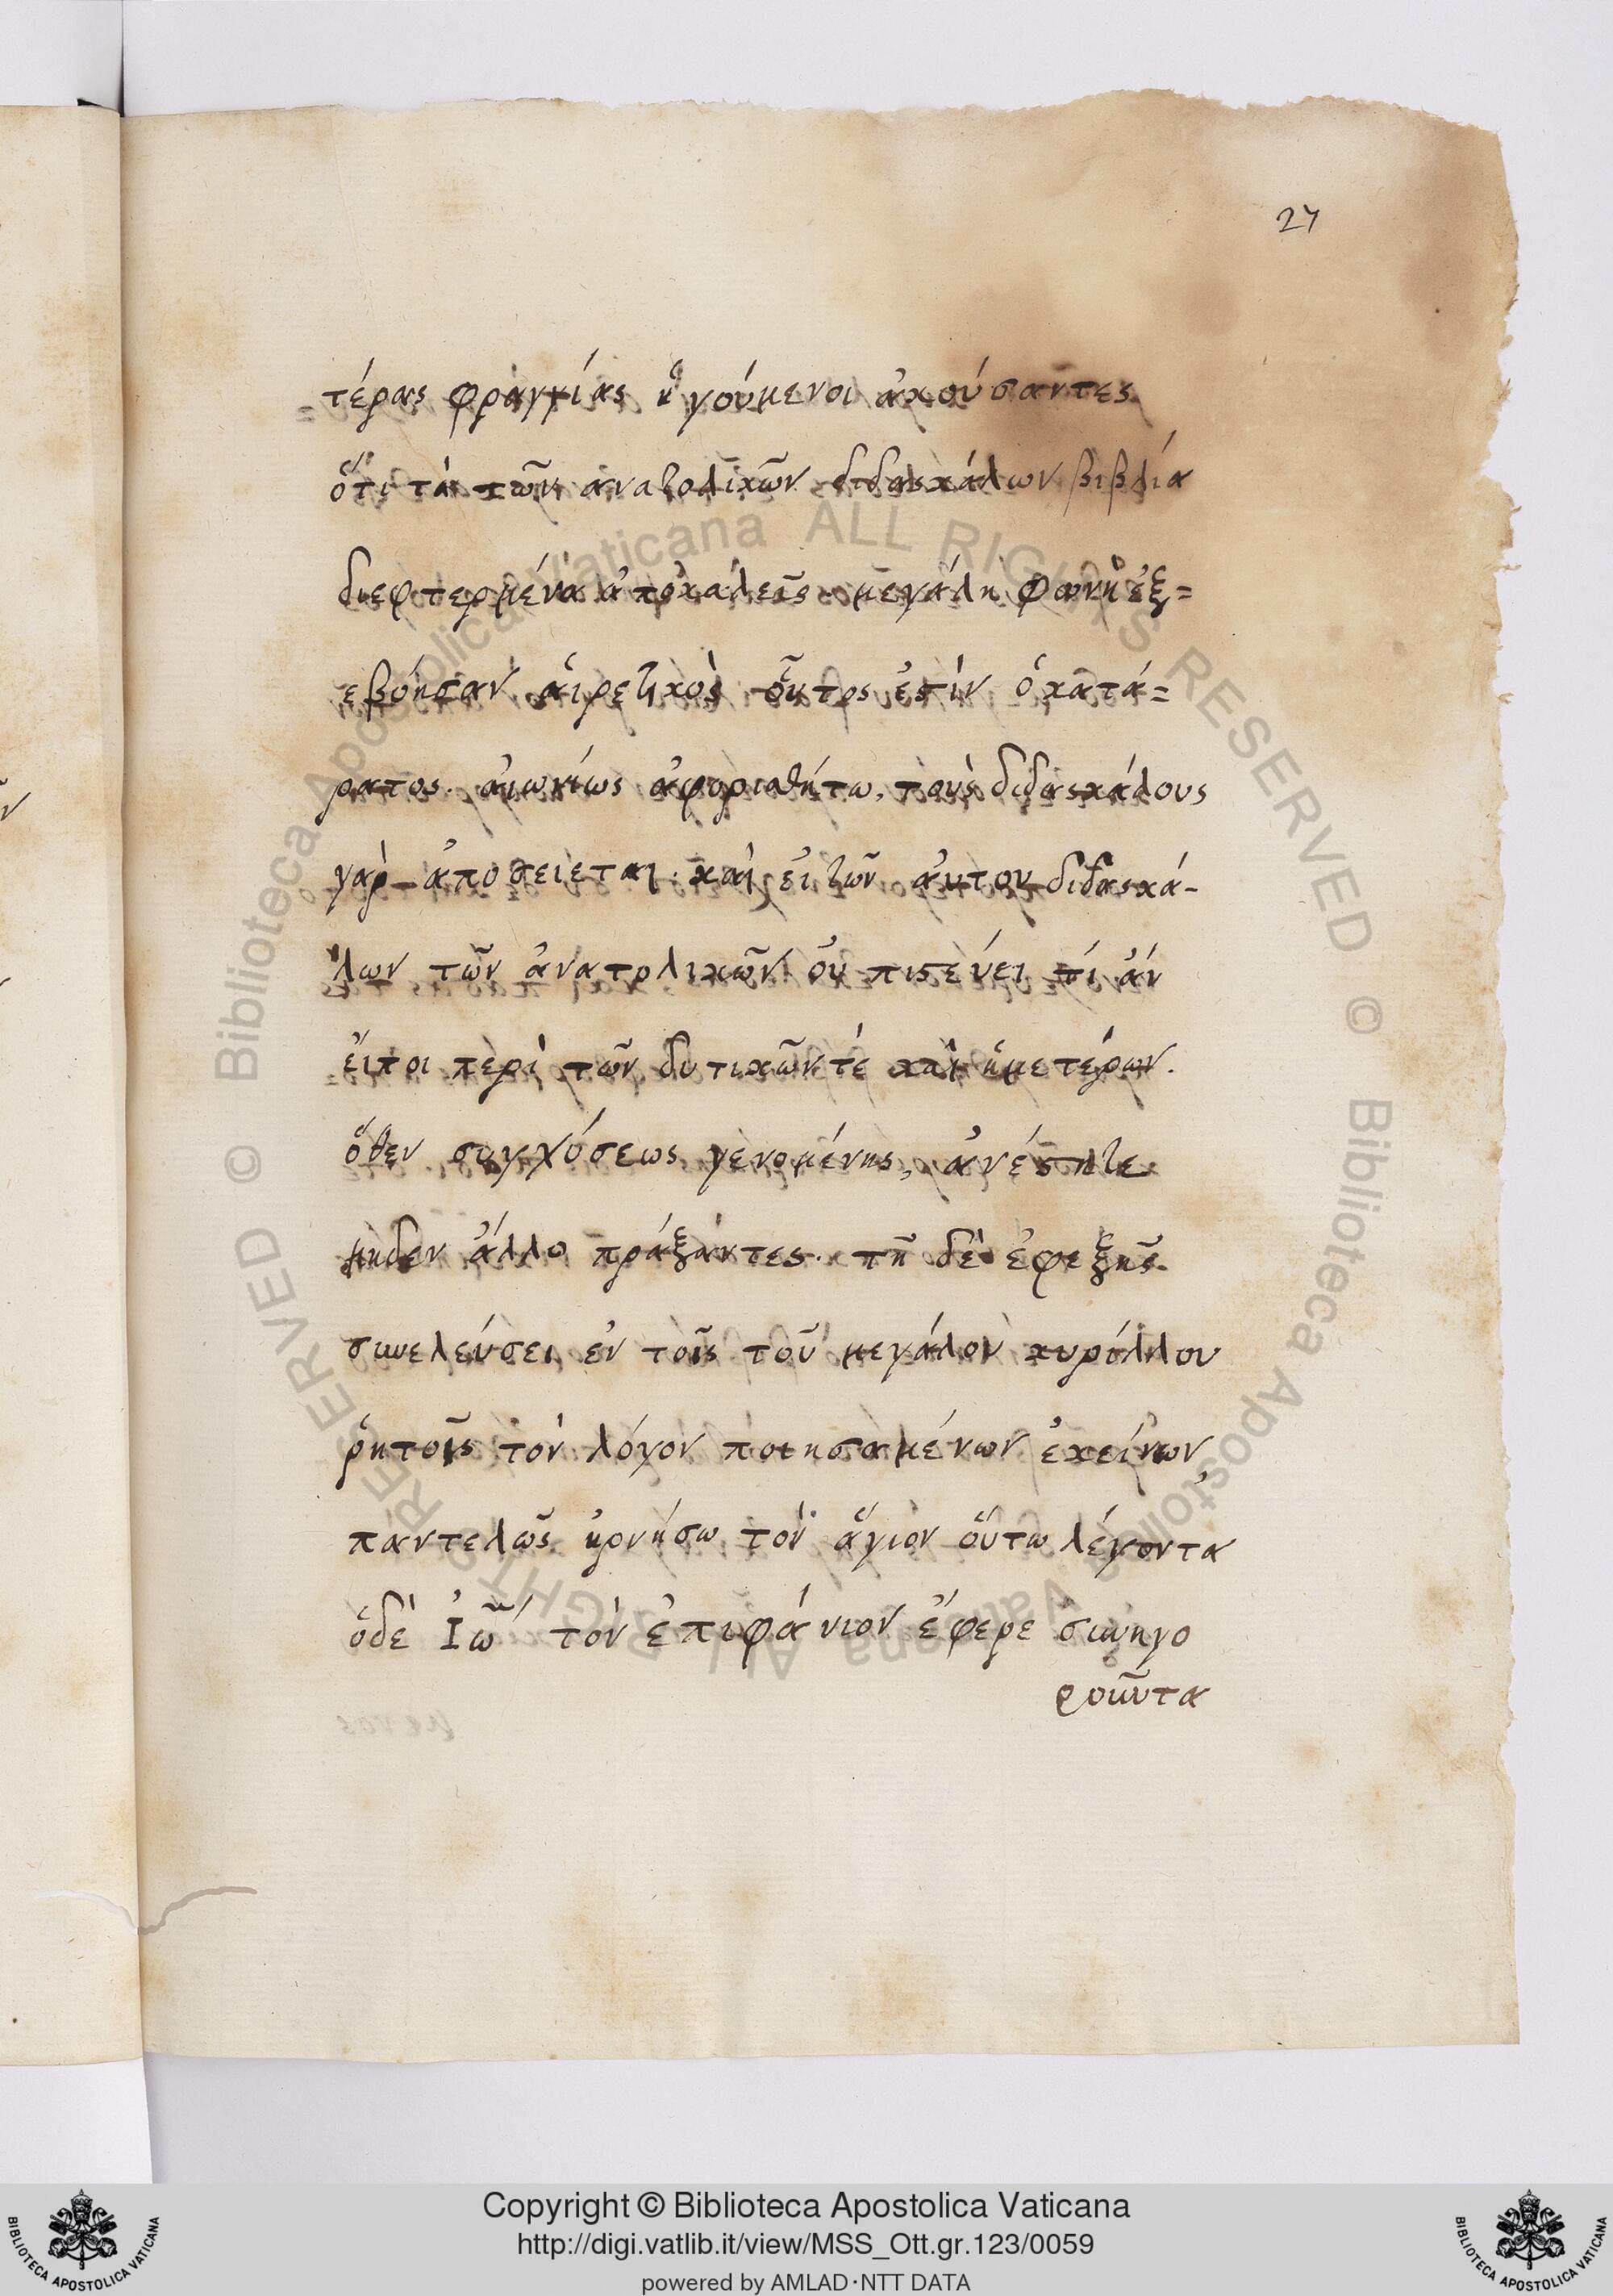 27
τέρας φραγγίας ἡγούμενοι ἀκούσαντες
ὅτι τὰ τῶν ἀνατολικῶν διδασκάλων βιβλία
διεφτερμένα ἀποκαλεῖς μεγάλη φωνῆ ἐξ=
εβόησαν αἱρετικὸς οὗτος ἐστίν ὁ κατά=
ρατος. ἀιωνίως ἀφορισθήτω, τοὺς διδασκάλους
γὰρ ἀποσείεται. καὶ εἰ τῶν ἀυτου διδασκά-
λων τῶν ἀνατολικῶν οὐ πιστεύει τί ἀν
ἔιποι περὶ τῶν δυτικῶν τέ καὶ ἡμετέρων.
ὅθεν συγχύσεως γενομένης, ἀνέστητε
μηδεν ἄλλο πράξαντες. τῆ δὲ ἐφεξῆς
συνελεύσει ἐν τοῖς τοῦ μεγάλου κυρίλλου
ῥητοῖς τὸν λόγον ποιησαμένων ἐκείνων
παντελῶς ἠρνήσω τὸν ἅγιον οὕτω λέγοντα
ὁδὲ Ἰω τὸν ἐπιφάνιον ἔφερε συνηγο
ροῦντα
Copyright © Biblioteca Apostolica Vaticana
http://digi.vatlib.it/view/MSS_Ott.gr.123/0059
powered by AMLAD·NTT DATA
BIBLIOTECA APOSTOLICA VATICANA
BIBLIOTECA APOSTOLICA VATICANA
© Biblioteca Apostolica Vaticana ALL RIGHTS RESERVED
© Biblioteca Apostolica Vaticana ALL RIGHTS RESERVED